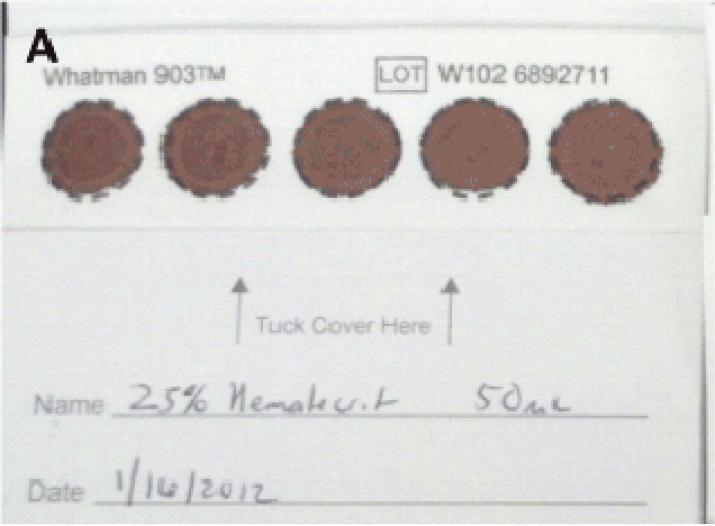 A
Whatman 903™ LOT W102 6892711
Tuck Cover Here
Name 25% Hematocrit 50
Date 1/16/2012